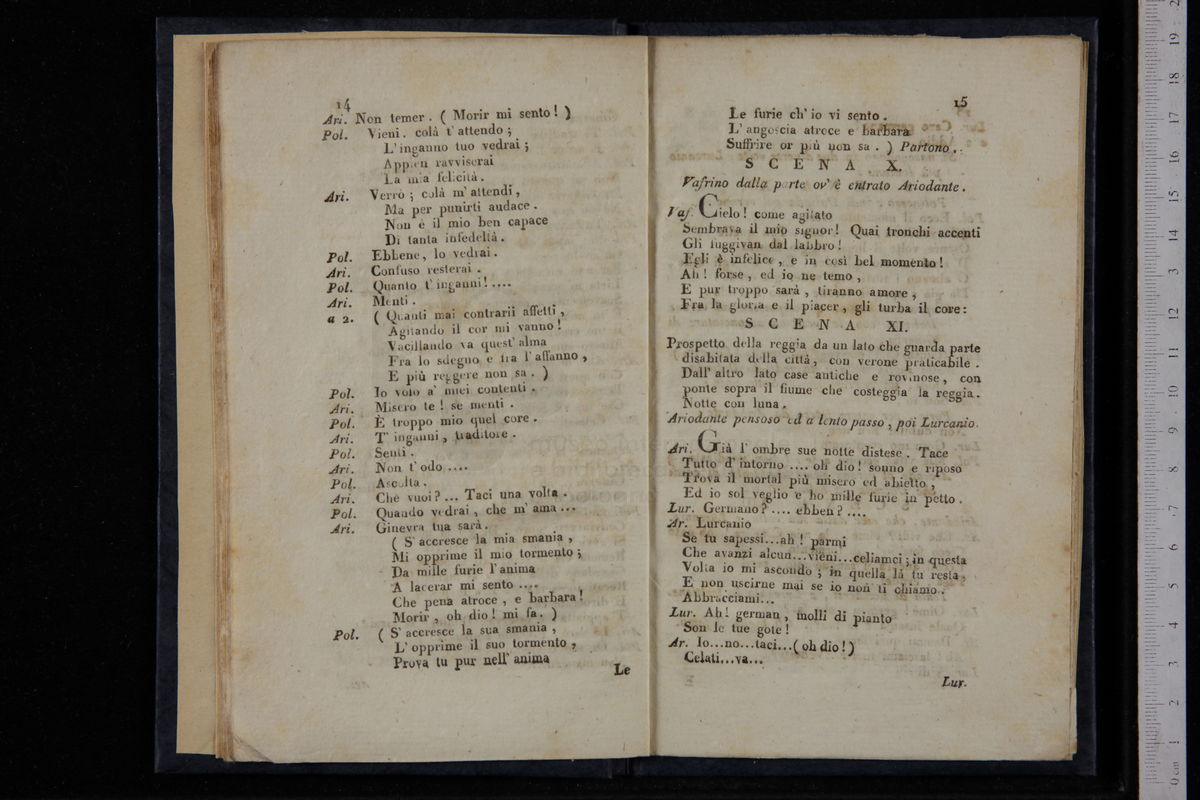 14
Ari. Non temer. ( Morir mi sento! )
Pol. Vieni. colà t' attendo ;
L' inganno tuo vedrai ;
Appien ravviserai
La mia felicità.
Ari. Verrò ; colà m' attendi,
Ma per punirti audace.
Non è il mio ben capace
Di tanta infedeltà.
Pol. Ebbene, lo vedrai.
Ari. Confuso resterai.
Pol. Quanto t' inganni!....
Ari. Menti.
a 2. ( Quanti mai contrarii affetti,
Agitando il cor mi vanno!
Vacillando va quest' alma
Fra lo sdegno e fra l' affanno,
E più reggere non sa. )
Pol. Io volo a' miei contenti.
Ari. Misero te! se menti.
Pol. È troppo mio quel core.
Ari. T' inganni, traditore.
Pol. Senti.
Ari. Non t' odo....
Pol. Ascolta.
Ari. Che vuoi?... Taci una volta.
Pol. Quando vedrai, che m' ama...
Ari. Ginevra tua sarà.
( S' accresce la mia smania,
Mi opprime il mio tormento ;
Da mille furie l' anima
A lacerar mi sento....
Che pena atroce, e barbara!
Morir, oh dio! mi fa. )
Pol. ( S' accresce la sua smania,
L' opprime il suo tormento,
Prova tu pur nell' anima
Le
15
Le furie ch' io vi sento.
L' angoscia atroce e barbara
Suffrire or più non sa. ) Partono.
S C E N A X.
Vafrino dalla parte ov' è entrato Ariodante.
Vaf. Cielo! come agitato
Sembrava il mio signor! Quai tronchi accenti
Gli fuggivan dal labbro!
Egli è infelice, e in così bel momento!
Ah! forse, ed io ne temo,
E pur troppo sarà, tiranno amore,
Fra la gloria e il piacer, gli turba il core:
S C E N A XI.
Prospetto della reggia da un lato che guarda parte
disabitata della città, con verone praticabile.
Dall' altro lato case antiche e rovinose, con
ponte sopra il fiume che costeggia la reggia.
Notte con luna.
Ariodante pensoso ed a lento passo, poi Lurcanio.
Ari. Già l' ombre sue notte distese. Tace
Tutto d' intorno.... oh dio! sonno e riposo
Trova il mortal più misero ed abietto,
Ed io sol veglio e ho mille furie in petto.
Lur. Germano?.... ebben?....
Ar. Lurcanio
Se tu sapessi...ah! parmi
Che avanzi alcun...vieni...celiamci ; in questa
Volta io mi ascondo ; in quella là tu resta,
E non uscirne mai se io non ti chiamo.
Abbracciami...
Lur. Ah! german, molli di pianto
Son le tue gote!
Ar. Io...no...taci...( oh dio! )
Celati...va...
Lur.